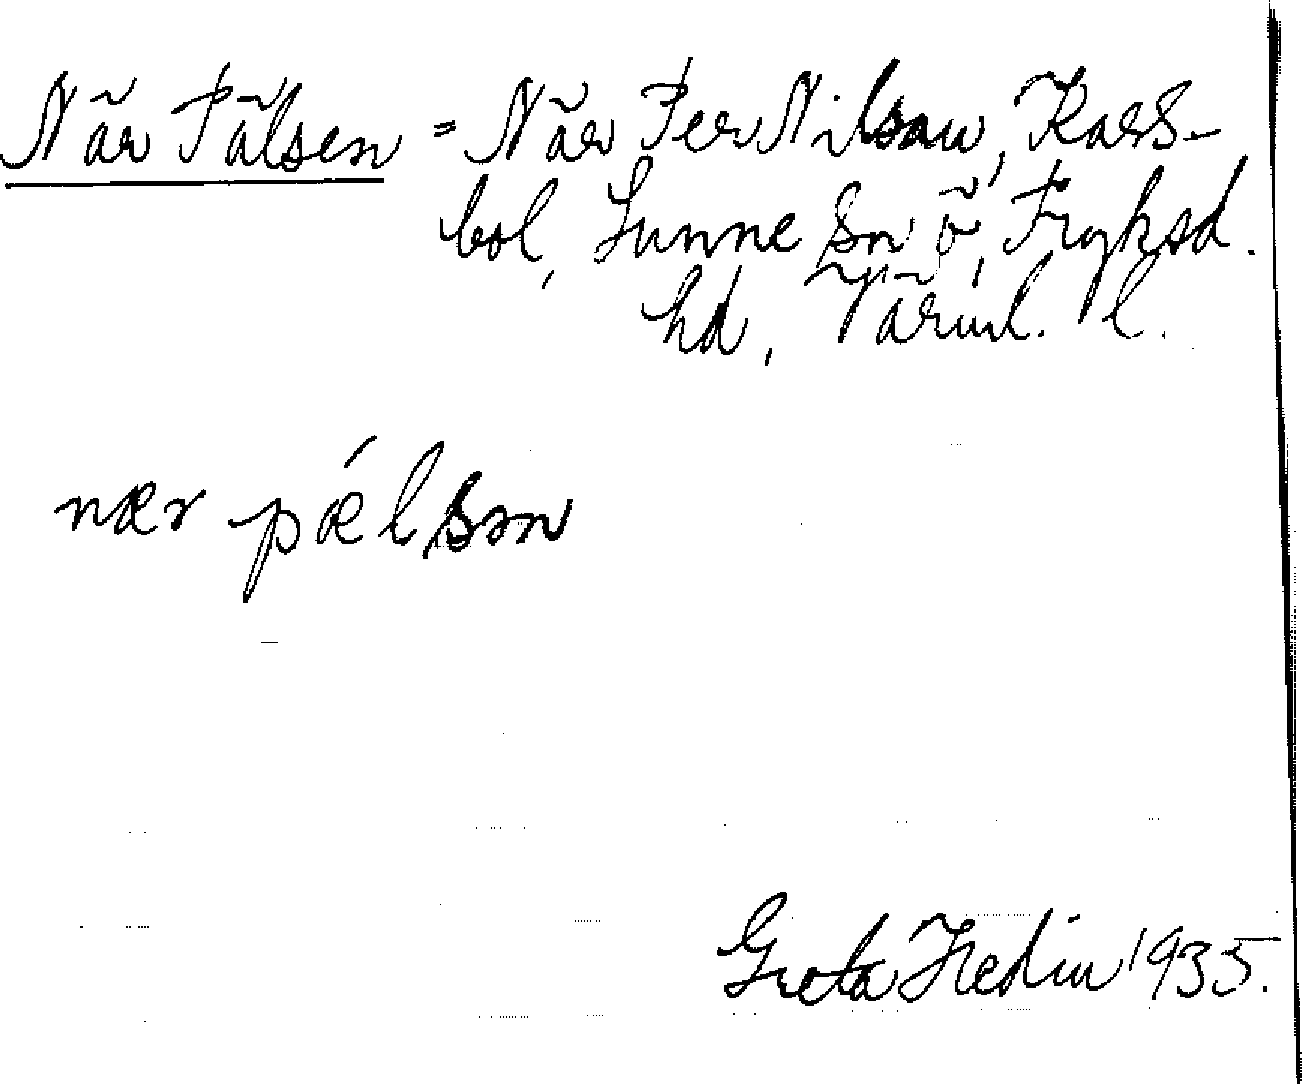 När Pälsen = När Per Nilsau, Kars-
bol, Sunne sn ö, Fryksd.
hd, Värml. l.
nær pǽlsən
Greta Hedin 1935.